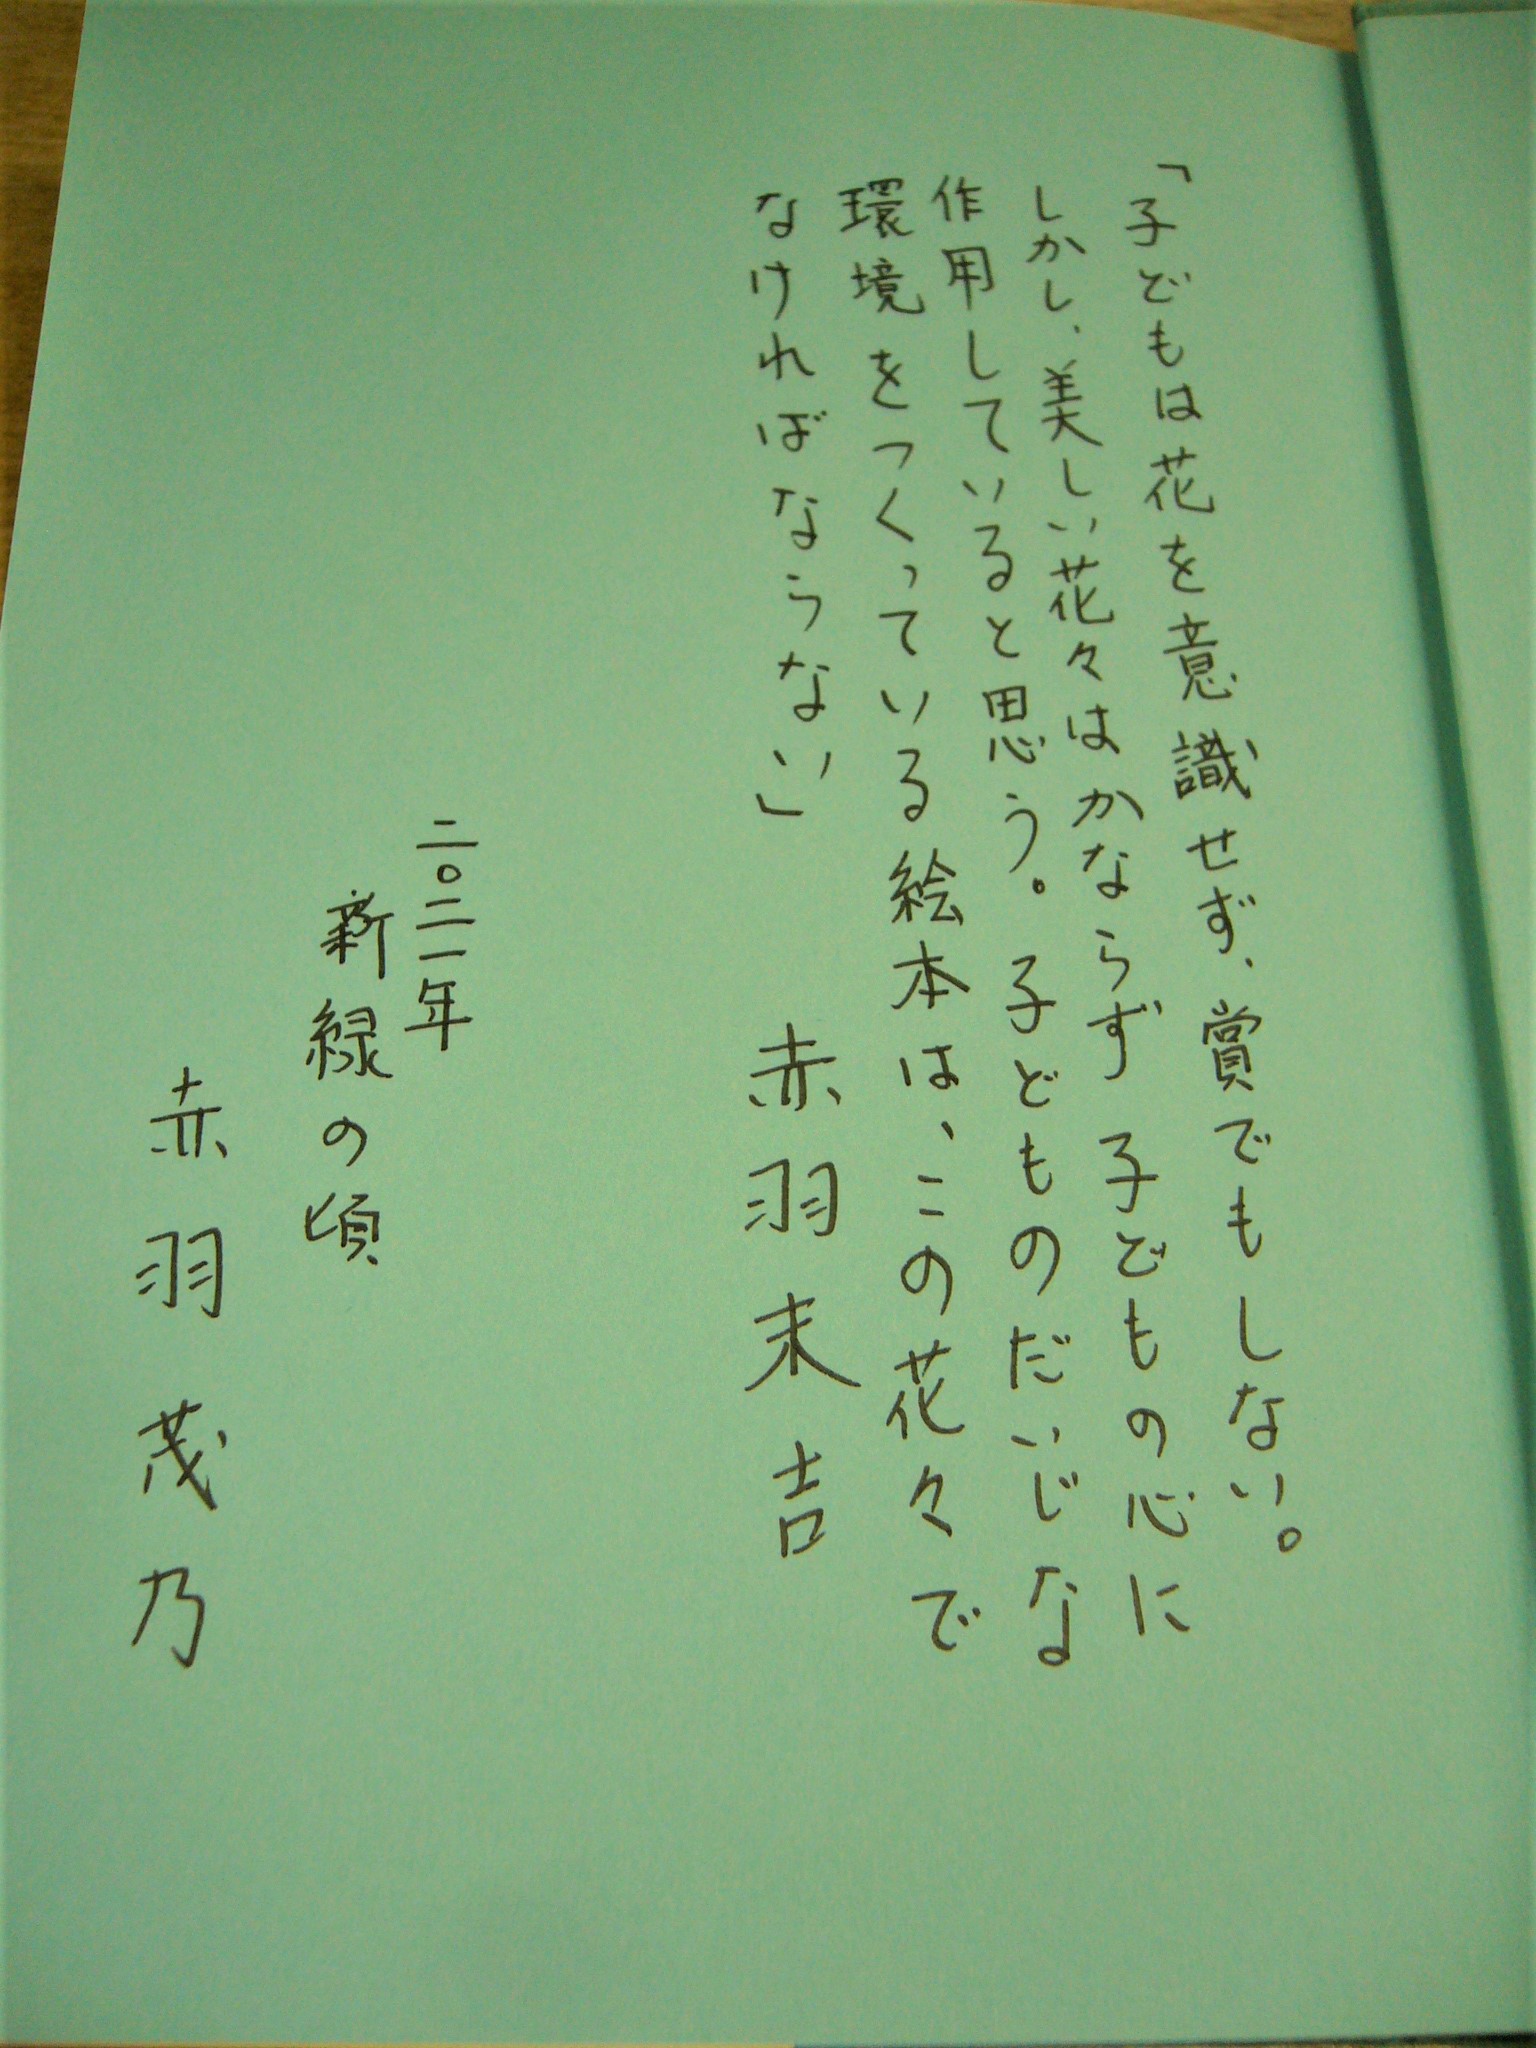 「子どもは花を意識せず、賞でもしない。
しかし、美しい花々はかならず子どもの心に
作用していると思う。子どものだいじな
環境をつくっている絵本は、この花々で
なければならない」
赤羽末吉
二〇二一年
新緑の頃
赤羽茂乃